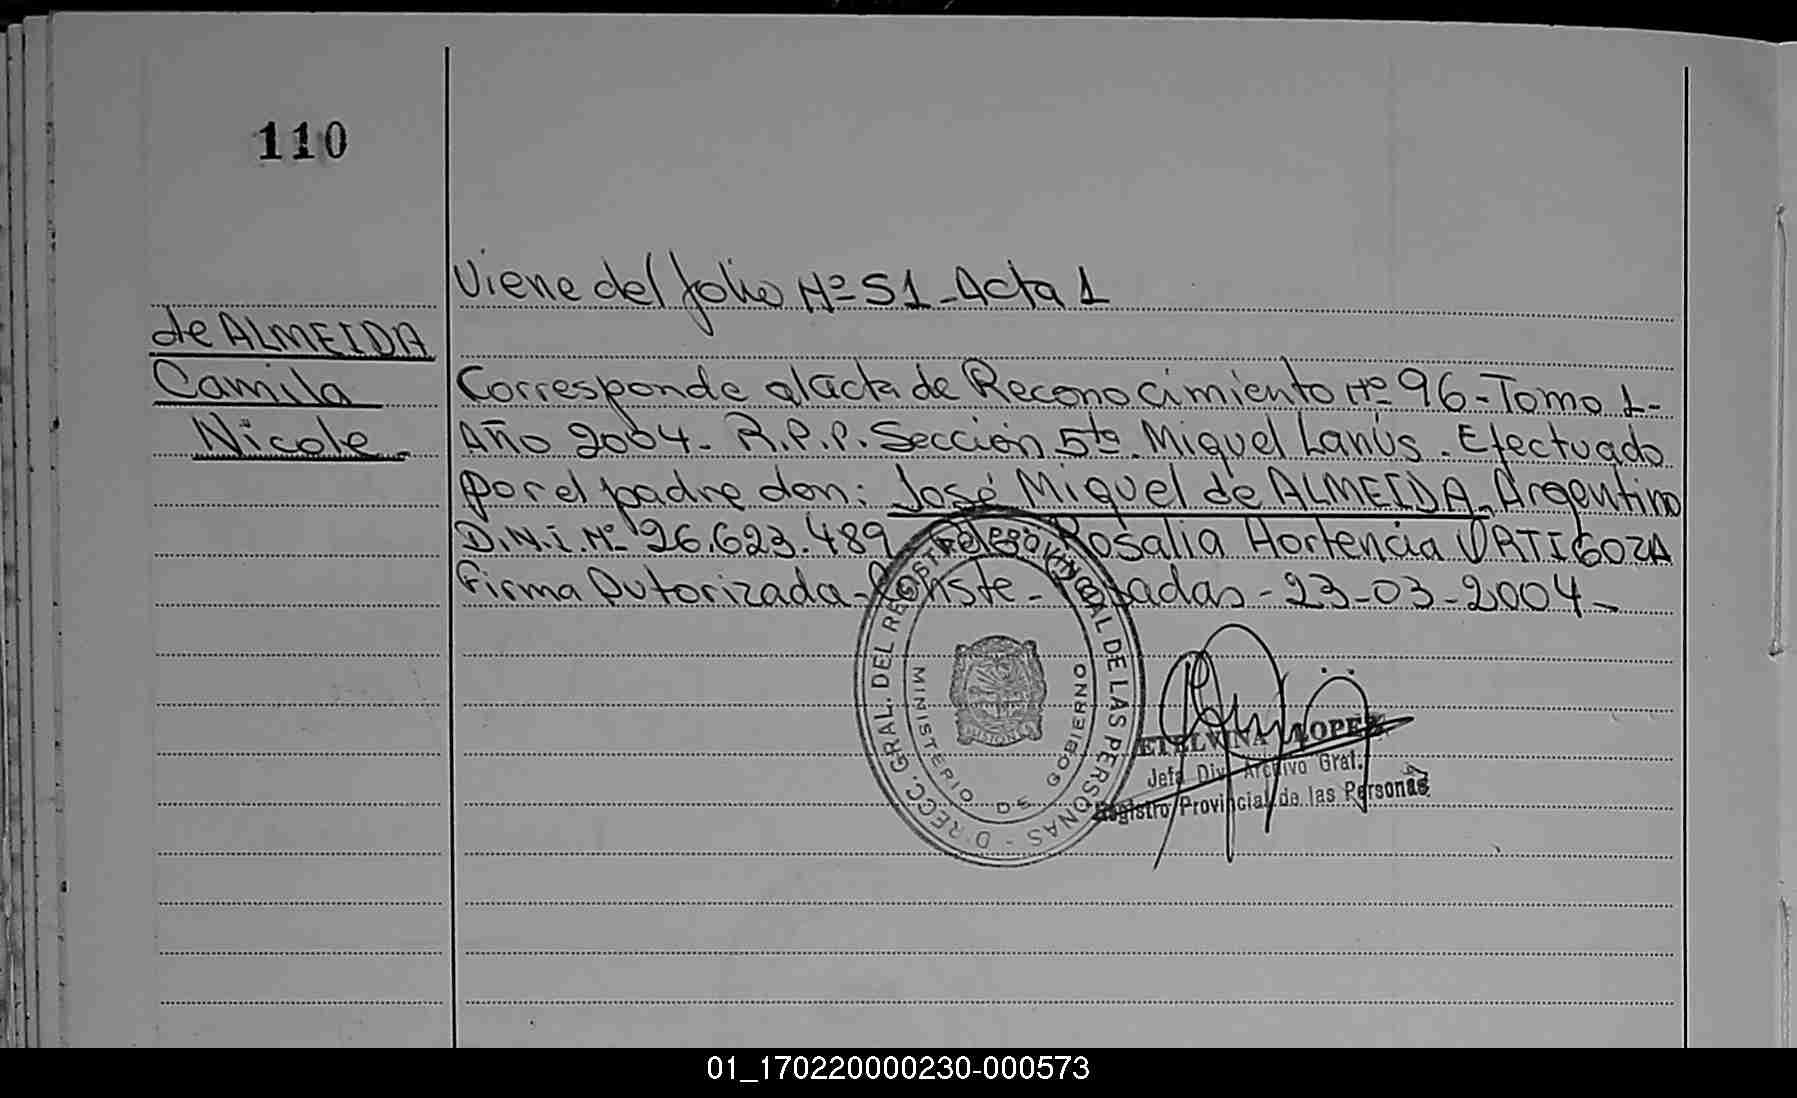 110
Viene del folio Nº 51 - Acta 1
de ALMEIDA
Camila
Nicole.
Corresponde al acta de Reconocimiento Nº 96 - Tomo 1 -
Año 2004 - R.P.P. Sección 5ta. Miguel Lanús. Efectuado
por el padre don: José Miguel de ALMEIDA, Argentino
D.N.i. Nº 26.623.489 Rosalia Hortencia URTIGOZA
Firma Autorizada - Conste - Posadas - 23-03-2004 -
DIRECC. GRAL. DEL REGISTRO PROVINCIAL DE LAS PERSONAS -
MINISTERIO DE GOBIERNO
MISIONES
ETELVINA LOPEZ
Jefa Div. Archivo Gral.
Registro Provincial de las Personas
01_170220000230-000573